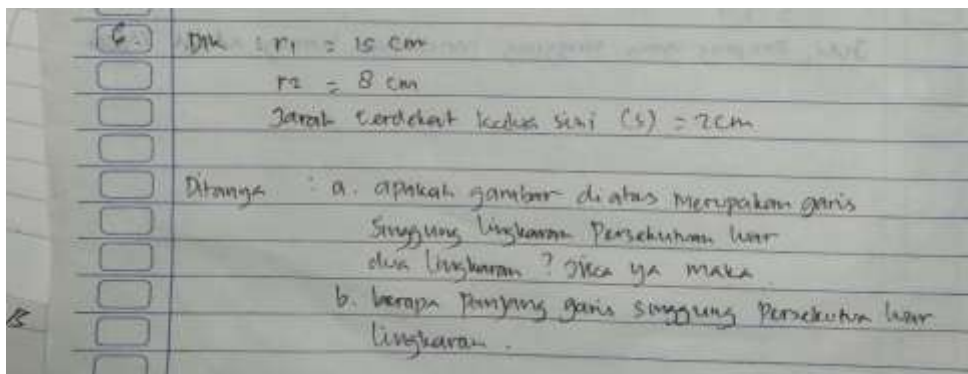 6.) Dik : r1 = 15 cm
r2 = 8 cm
Jarak terdekat kedua sisi (s) = 2cm
Ditanya : a. apakah gambar diatas merupakan garis
Singgung lingkaran Persekutuan luar
dua lingkaran ? Jika ya maka
b. berapa Panjang garis singgung Persekutuan luar
lingkaran.